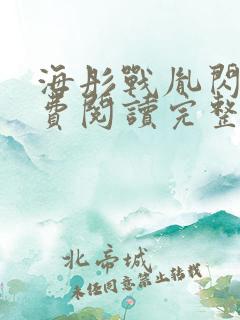 海彤戰胤閃
費閱讀完整
北帝城
未經同意禁止轉載